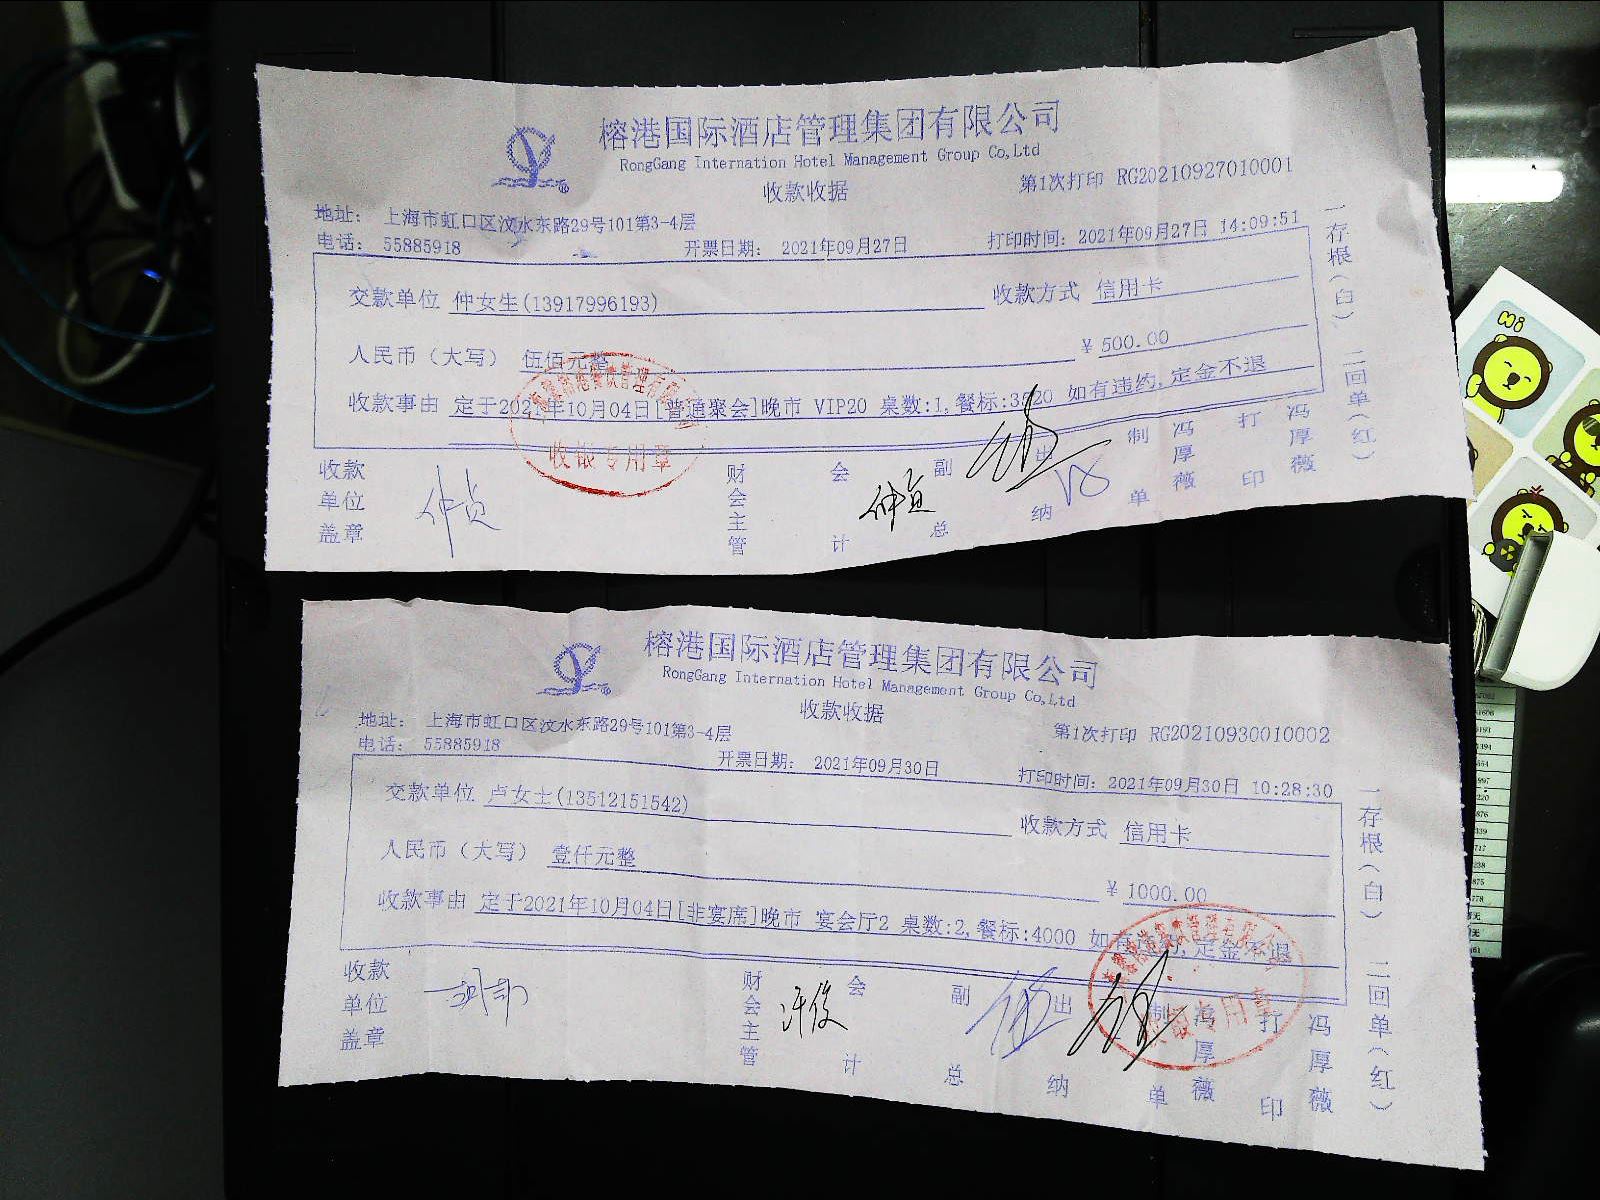 榕港国际酒店管理集团有限公司
RongGang Internation Hotel Management Group Co,Ltd
收款收据
第1次打印 RG20210927010001
地址： 上海市虹口区汶水东路29号101第3-4层
电话： 55885918 开票日期： 2021年09月27日 打印时间：2021年09月27日 14:09:51
交款单位 仲女生(13917996193) 收款方式 信用卡
人民币（大写） 伍佰元整 ￥500.00
收款事由 定于2021年10月04日[普通聚会]晚市 VIP20 桌数:1,餐标:3520 如有违约,定金不退
收银专用章
收款单位盖章 仲贞 财会主管 会计 仲贞 副总 出纳 制单 冯厚薇 打印 冯厚薇
一存根（白） 二回单（红）
榕港国际酒店管理集团有限公司
RongGang Internation Hotel Management Group Co,Ltd
收款收据
第1次打印 RG20210930010002
地址： 上海市虹口区汶水东路29号101第3-4层
电话： 55885918 开票日期： 2021年09月30日 打印时间：2021年09月30日 10:28:30
交款单位 卢女士(13512151542) 收款方式 信用卡
人民币（大写） 壹仟元整 ￥1000.00
收款事由 定于2021年10月04日[非宴席]晚市 宴会厅2 桌数:2,餐标:4000 如有违约,定金不退
专用章
收款单位盖章 财会主管 会计 副总 出纳 制单 冯厚薇 打印 冯厚薇
一存根（白） 二回单（红）
Hi